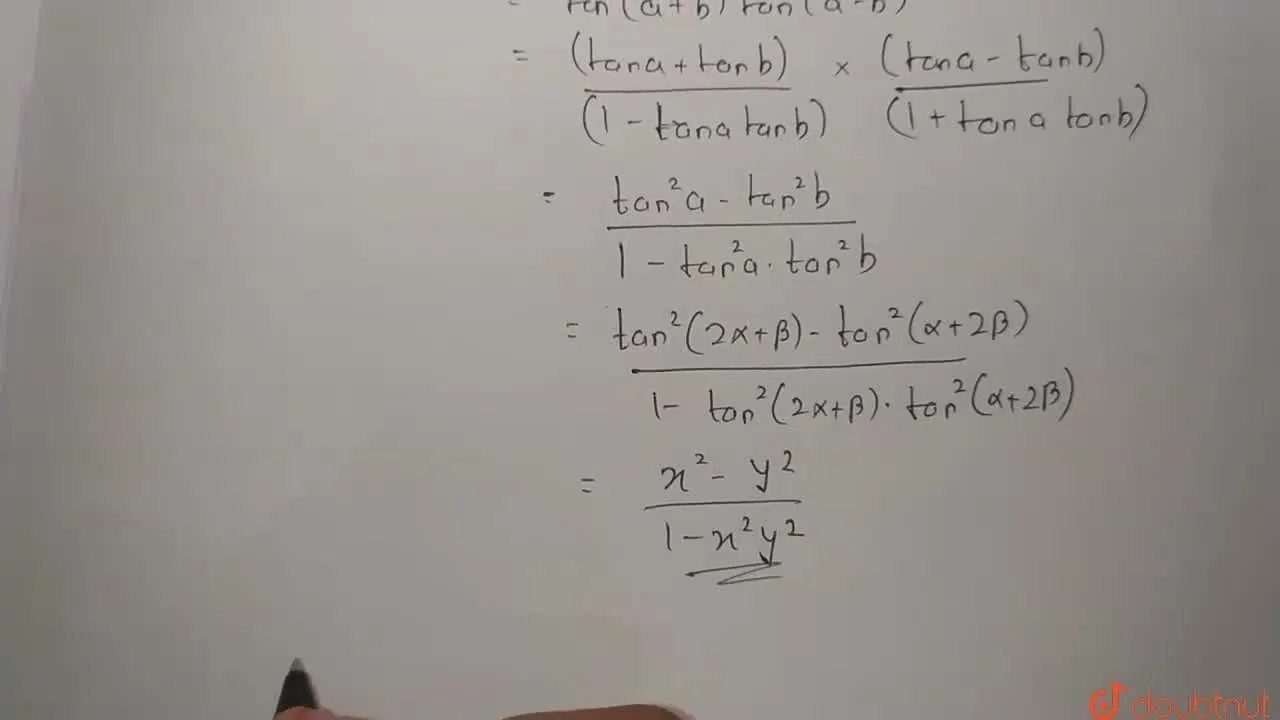 = tan(a+b) tan(a-b)
= (tana + tanb) × (tana - tanb)
(1 - tana tanb) (1 + tana tanb)
= tan²a - tan²b
1 - tan²a · tan²b
= tan²(2α+β) - tan²(α+2β)
1 - tan²(2α+β) · tan²(α+2β)
= x² - y²
1 - x²y²
doubtnut